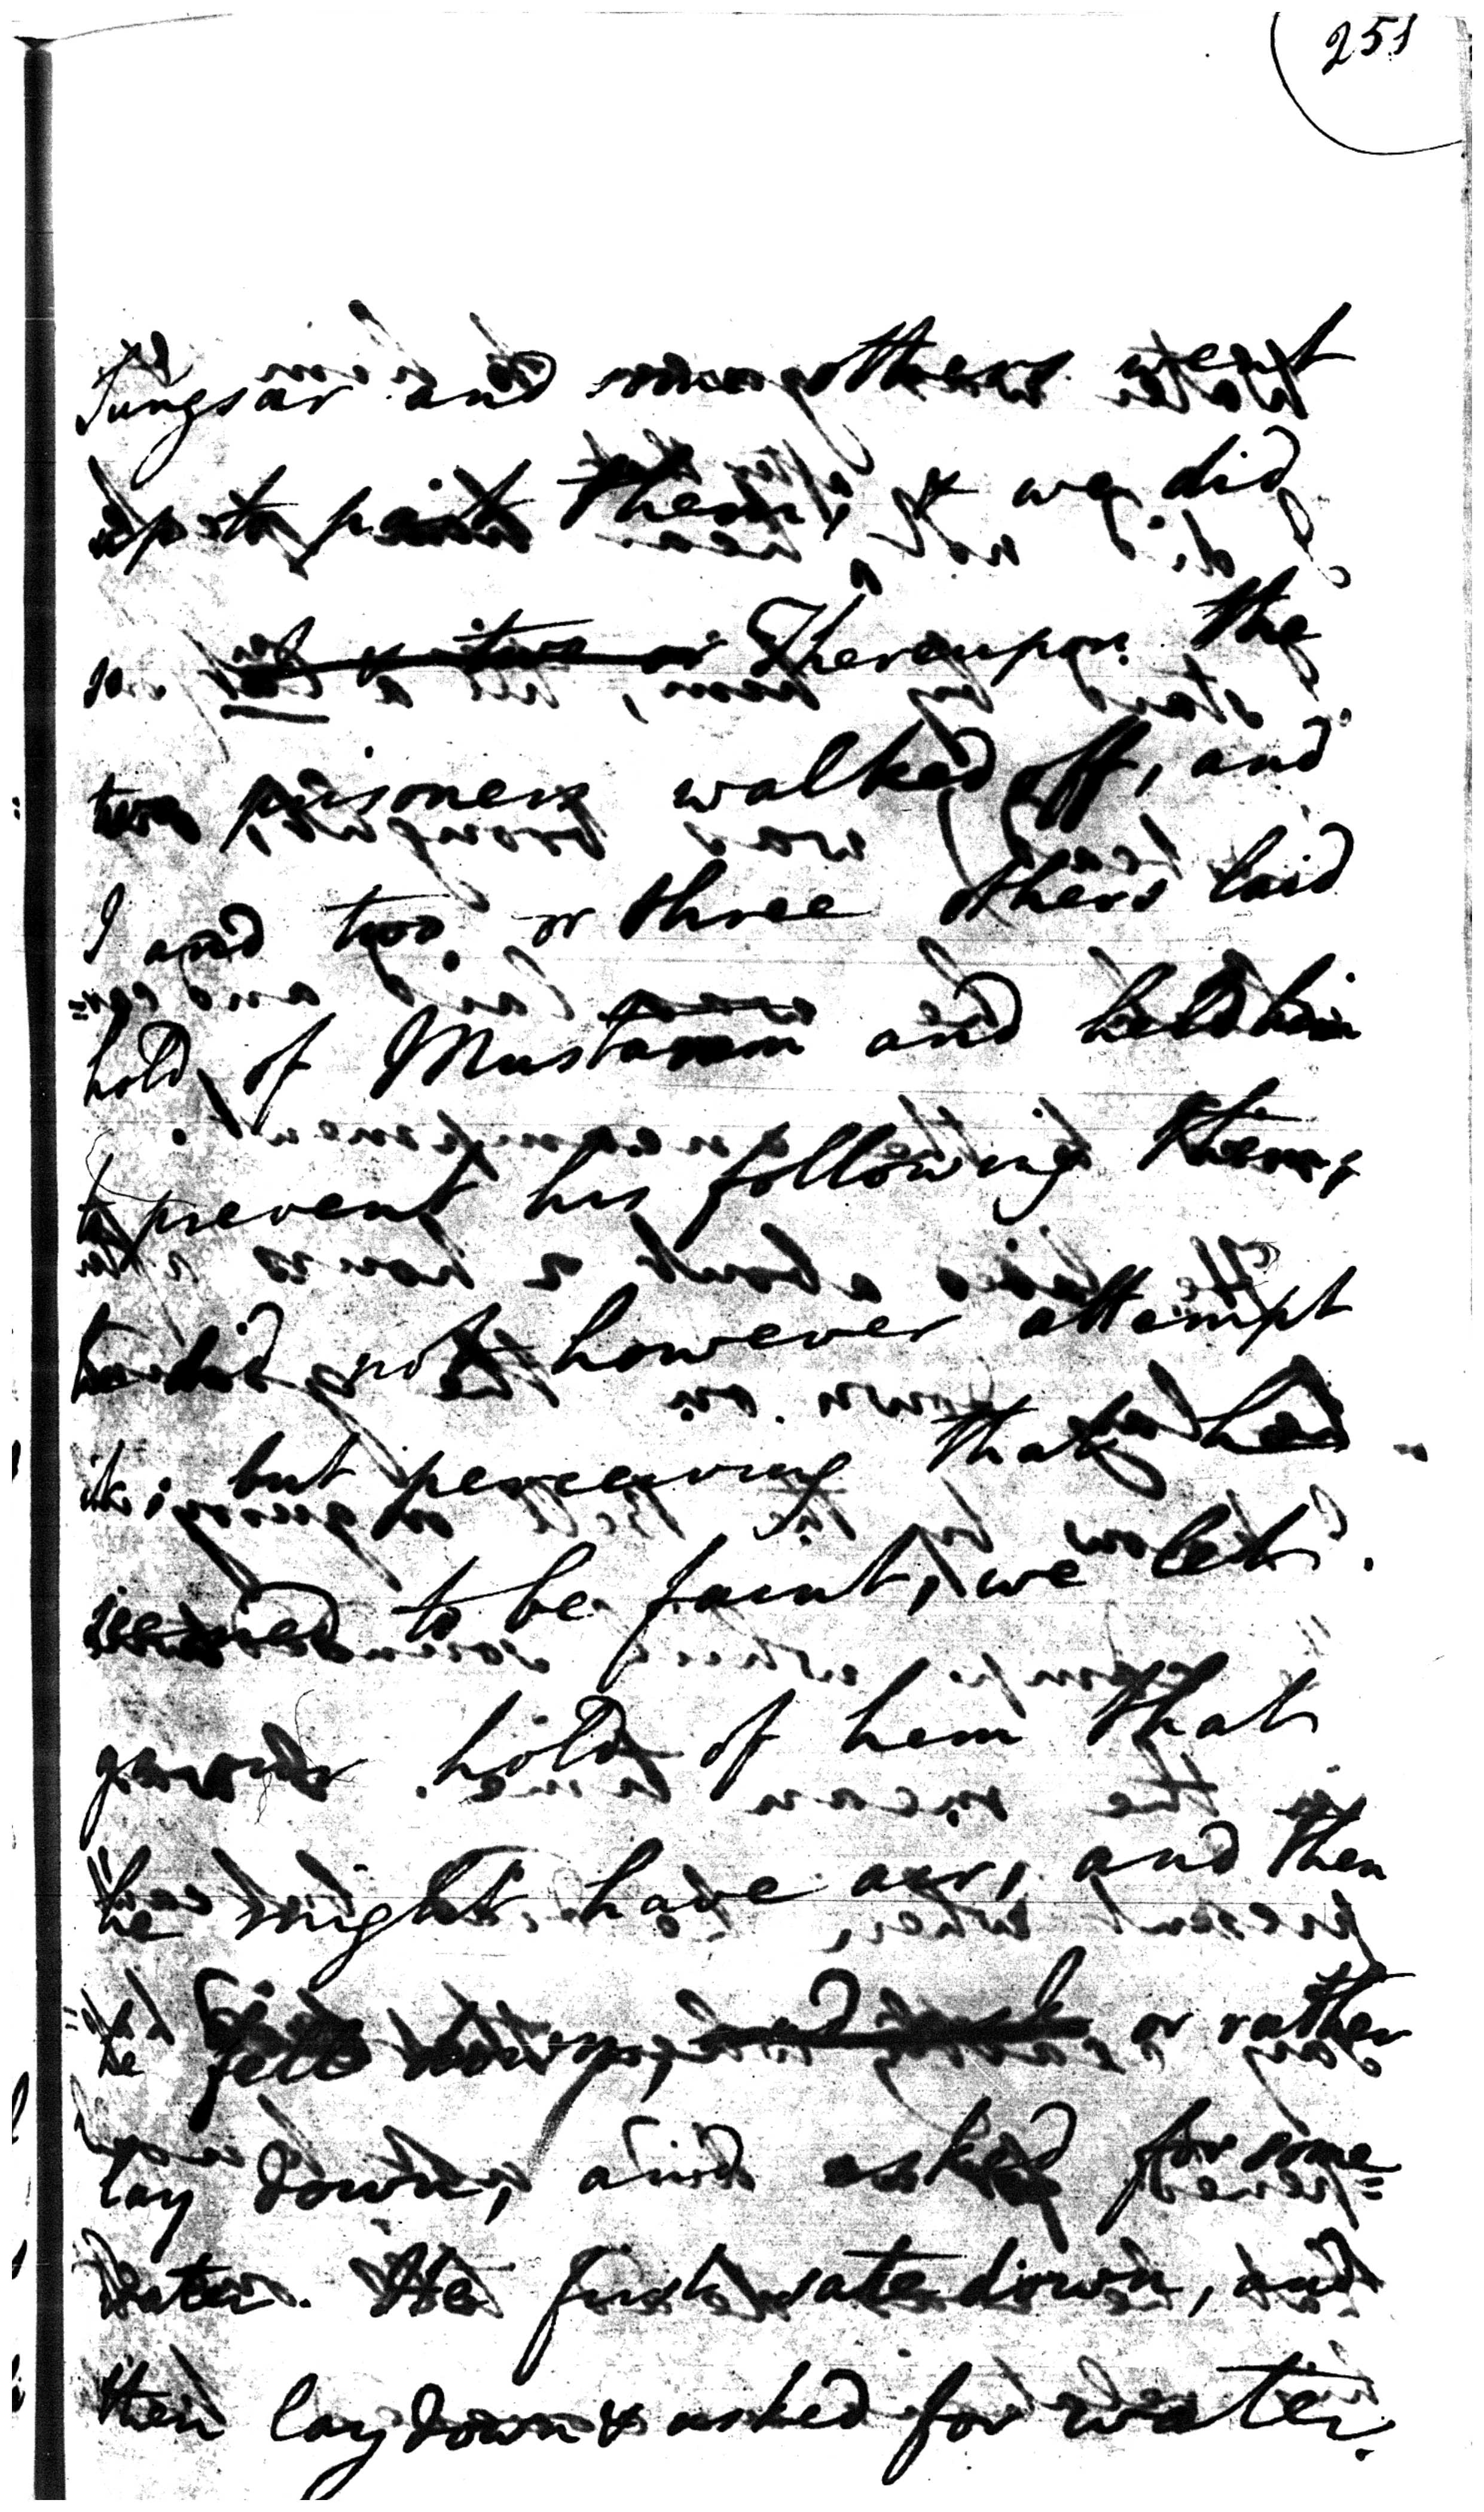 251
Jungsar and some others went
up to part them, & we did
so. Thereupon the
two prisoners walked off, and
I and two or three others laid
hold of Mustaram and held him
to prevent his following them,
he did not however attempt
it; but perceiving that he
seemed to be faint, we let
go our hold of him that
he might have air, and then
he fell down, or rather
lay down, and asked for some
water. He first sate down, and
then lay down & asked for water.